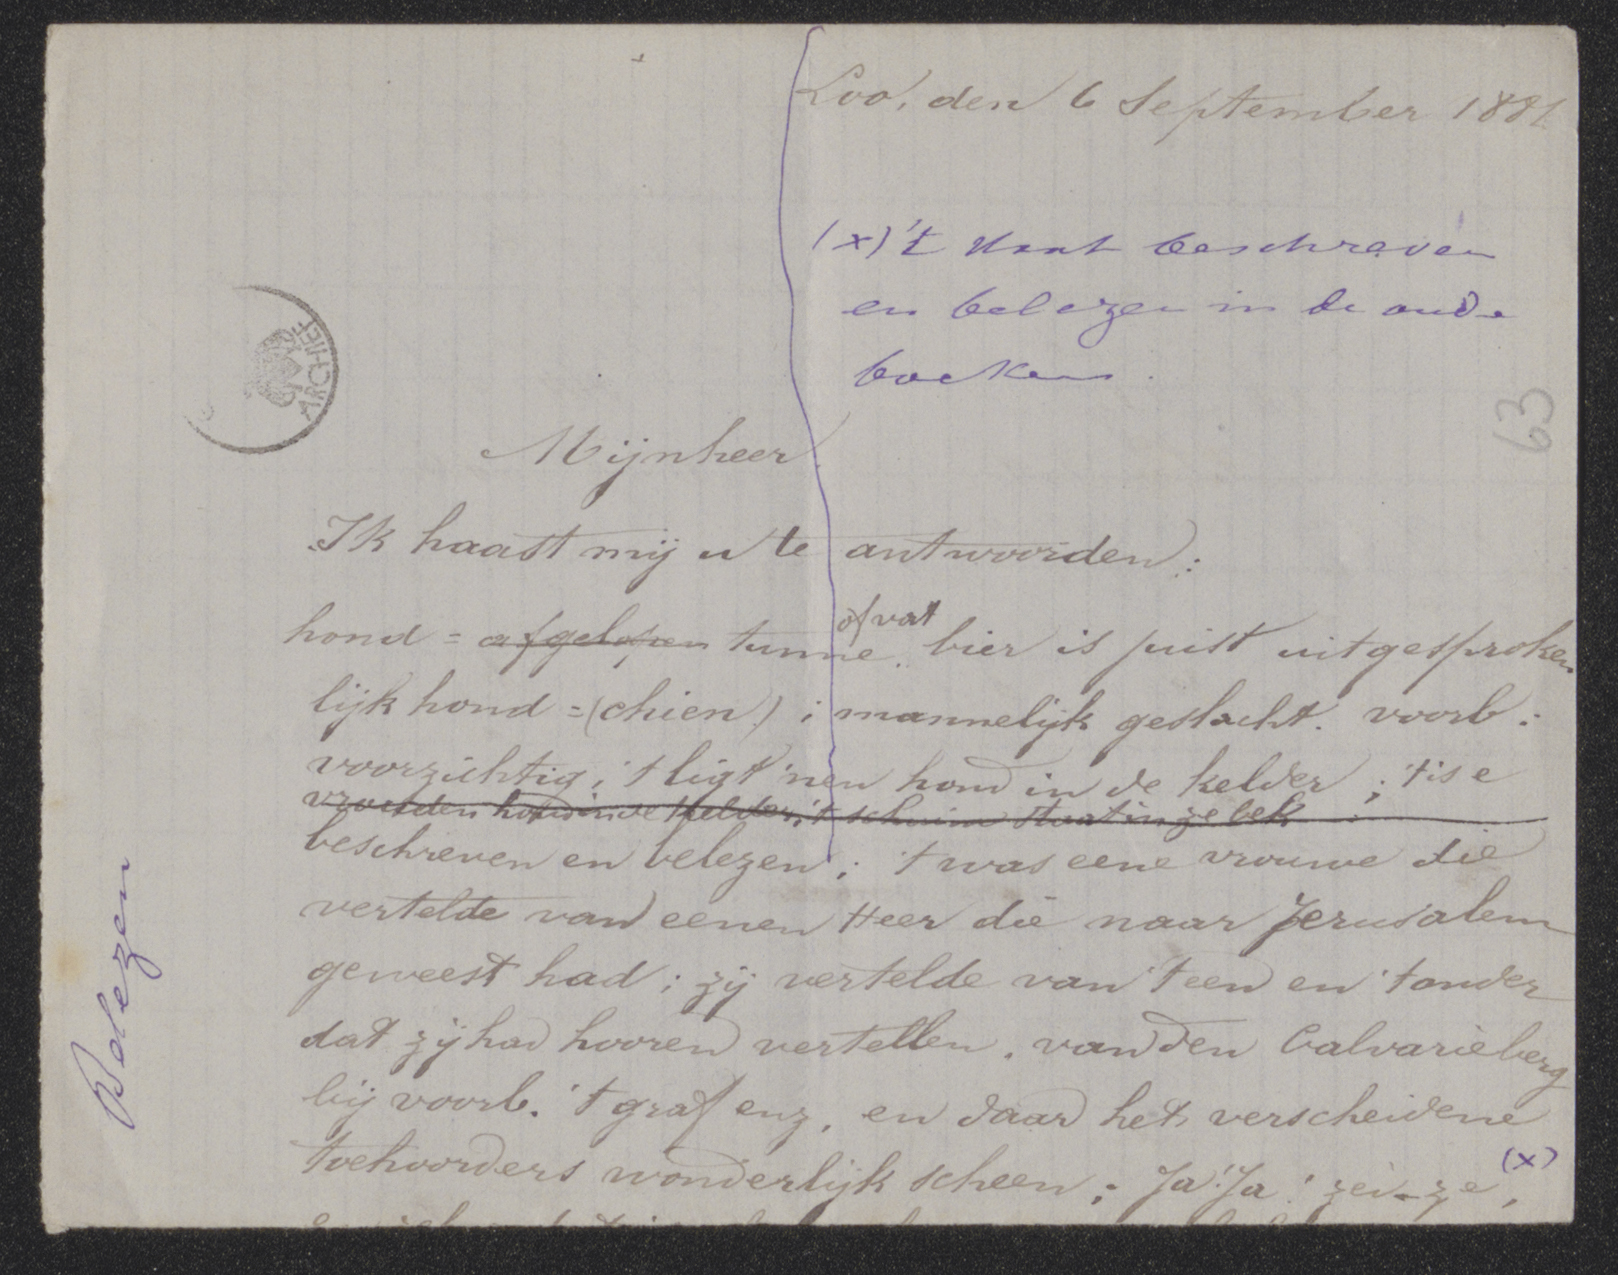 Loo, den 6 September 1881
(x) 't staat beschreven
en belezen in de oude
boeken.
ARCHIEF
63
Mijnheer
Ik haast mij u te antwoorden:
of vat
hond = afgelopen tunne. bier is juist uitgesproken
lijk hond = (chien) ; mannelijk geslacht. voorb:
voorzichtig, 't ligt 'nen hond in de kelder ; 't is e
vrouden hond in de kelder; 't schuim staat in ze bek
beschreven en belezen ; 't was eene vrouwe die
vertelde van eenen Heer die naar Jerusalem
geweest had ; zij vertelde van 't een en 't ander
dat zij had hooren vertellen. van den Calvarieberg
bij voorb. 't graf enz. en daar het verscheidene
toehoorders wonderlijk scheen ; Ja! Ja! zei-ze, (x)
Belezen